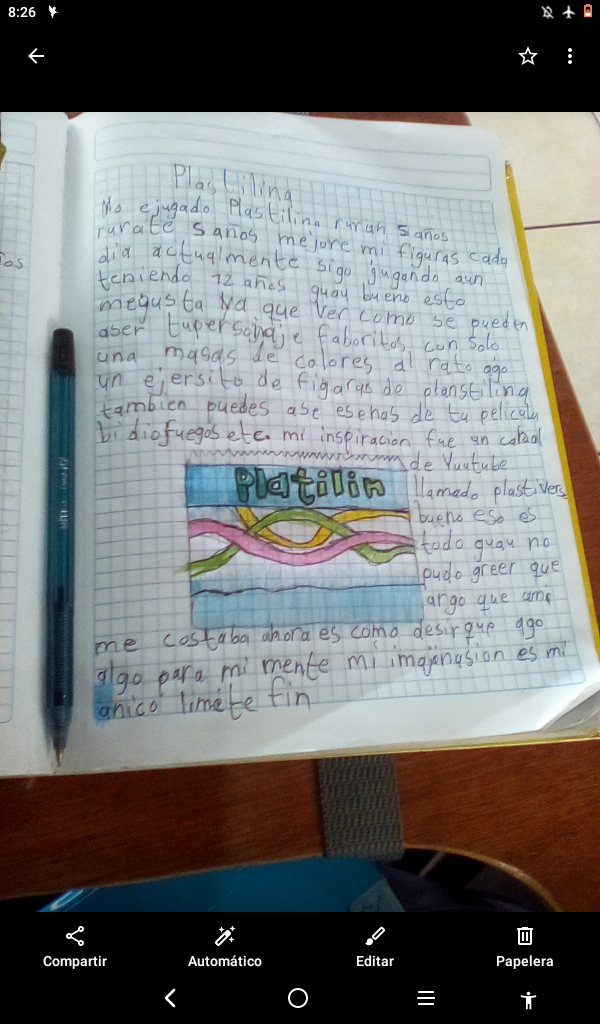 8:26
Plastilina
Yo ejugado Plastilina ruran 5 años
rurate 5 años mejore mi figuras cada
dia actualmente sigo jugando aun
teniendo 12 años guau bueno esto
megusta ya que ver como se pueden
aser tupersonaje faboritos con solo
una masas de colores al rato ago
un ejersito de figuras de planstilina
tambien puedes ase esenas de tu pelicula
bidiofuegos etc. mi inspiracion fue un canal
de Yuutube
Platilin
llamado plastivers
bueno eso es
todo guau no
pudo greer que
argo que ami
me costaba ahora es como desir que ago
algo para mi mente mi imajanasion es mi
unico limete fin
Compartir
Automático
Editar
Papelera